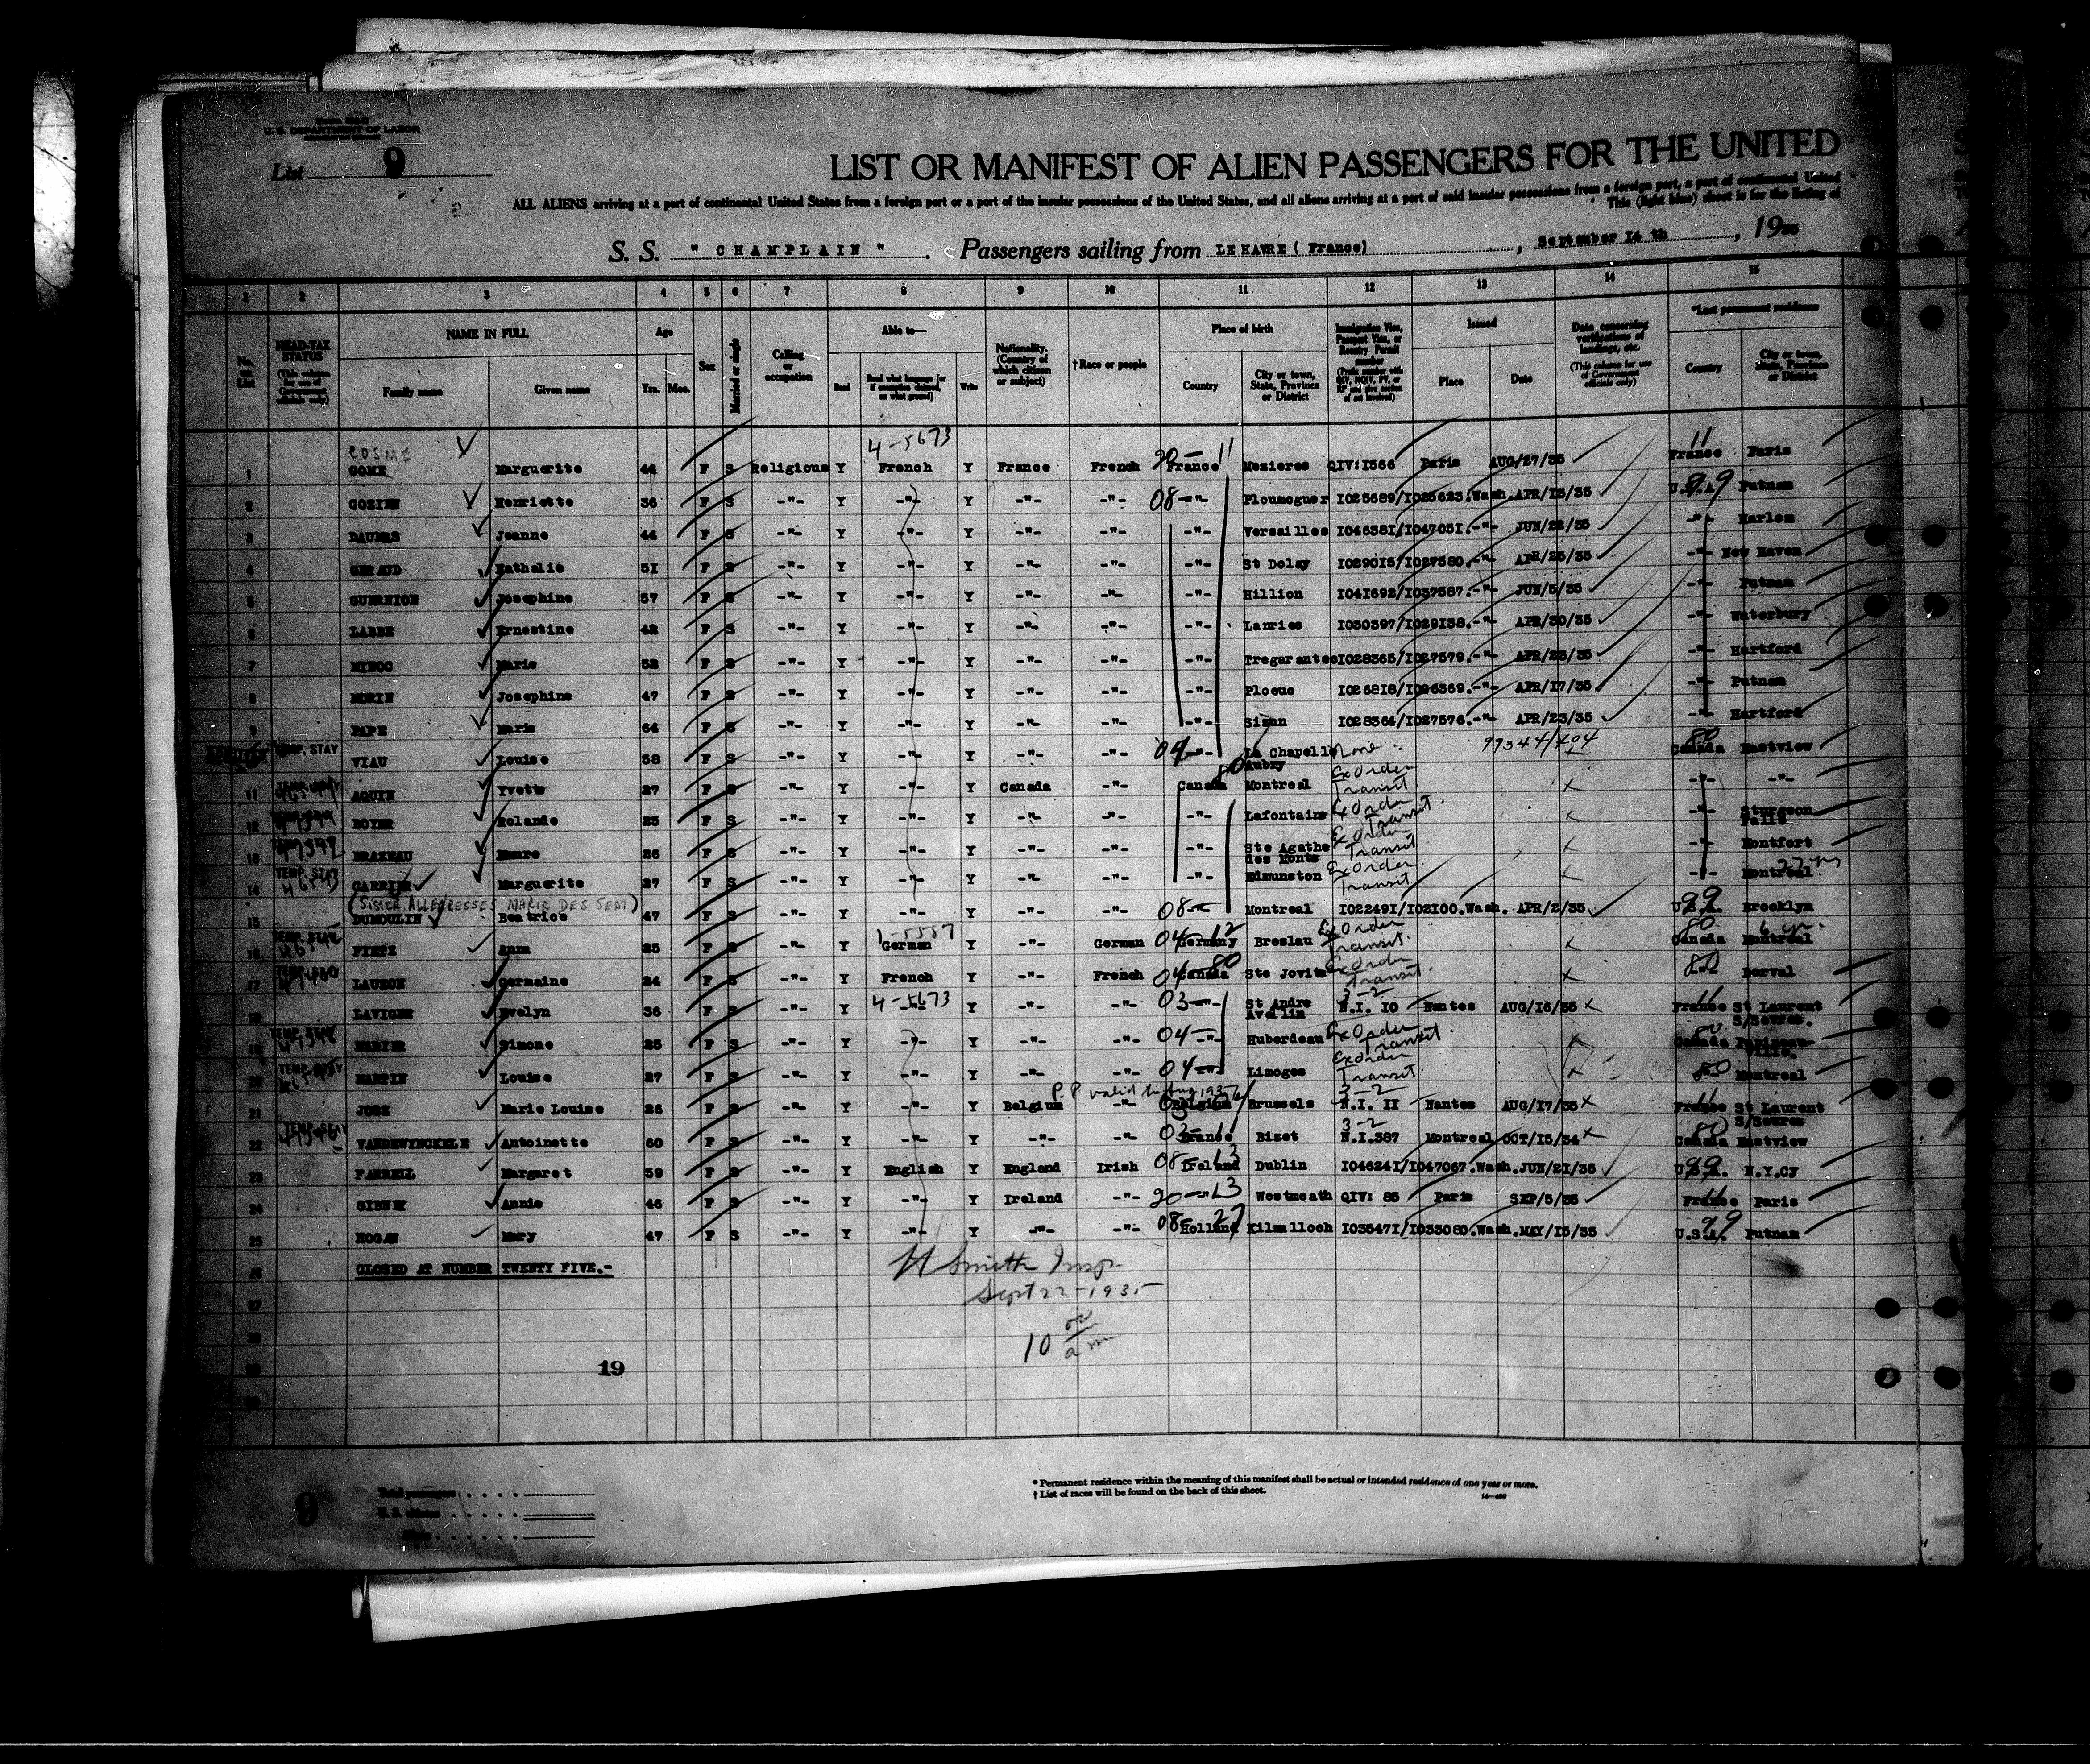 U. S. DEPARTMENT OF LABOR
List 9
LIST OR MANIFEST OF ALIEN PASSENGERS FOR THE UNITED
ALL ALIENS arriving at a port of continental United States from a foreign port or a port of the insular possessions of the United States, and all aliens arriving at a port of said insular possessions from a foreign port, a port of continental United
This (light blue) sheet is for the listing of
S. S. " CHAMPLAIN " . Passengers sailing from LE HAVRE ( France) , September 14 th , 19
1 2 3 4 5 6 7 8 9 10 11 12 13 14 15
No. on List
HEAD-TAX STATUS (This column for use of Government officials only)
NAME IN FULL Family name Given name
Age Yrs. Mos.
Sex
Married or single
Calling or occupation
Able to— Read Read what language [or if exemption claimed, on what ground] Write
Nationality. (Country of which citizen or subject)
†Race or people
Place of birth Country City or town, State, Province or District
Immigration Visa, Passport Visa, or Reentry Permit number (Prefix number with QIV, NQIV, PV, or RP and give section of act involved)
Issued Place Date
Data concerning verifications of landings, etc. (This column for use of Government officials only)
*Last permanent residence Country City or town, State, Province or District
COSME 4-5673
1 Marguerite 44 F S Religious Y French Y France French 20- France 11 Mezieres QIV:1566 Paris AUG/27/35 11 France Paris
2 GOZIEN Henriette 36 F S -"- Y -"- Y -"- -"- 08 -"- Ploumoguer I025689/I025623.Wash.APR/13/35 U.S.A. 99 Putnam
3 DAUMAS Jeanne 44 F S -"- Y -"- Y -"- -"- -"- Versailles I046381/I047051.-"- JUN/22/35 -"- Harlem
4 GERAUD Nathalie 51 F S -"- Y -"- Y -"- -"- -"- St Dolay I029015/I027580.-"- APR/25/35 -"- New Haven
5 GUERNION Josephine 57 F S -"- Y -"- Y -"- -"- -"- Hillion I041692/I037587.-"- JUN/5/35 -"- Putnam
6 LABBE Ernestine 42 F S -"- Y -"- Y -"- -"- -"- Lanries I030397/I029138.-"- APR/30/35 -"- Waterbury
7 MINOC Marie 52 F S -"- Y -"- Y -"- -"- -"- Tregarantec I028365/I027579.-"- APR/23/35 -"- Hartford
8 MORIN Josephine 47 F S -"- Y -"- Y -"- -"- -"- Ploeuc I026818/I026369.-"- APR/17/35 -"- Putnam
9 PAPE Marie 64 F S -"- Y -"- Y -"- -"- -"- I028364/I027576.-"- APR/23/35 -"- Hartford
TEMP. STAY VIAU Louise 58 F S -"- Y -"- Y -"- -"- 04 -"- La Chapelle Aubry None 99344/404 80 Canada Eastview
11 AQUIN Yvette 27 F S -"- Y -"- Y Canada -"- Canada 80 Montreal Ex Order Transit -"- -"-
12 BOYER Rolande 25 F S -"- Y -"- Y -"- -"- -"- Lafontaine Ex Order Transit -"- Sturgeon Falls
13 BRAZEAU 26 F S -"- Y -"- Y -"- -"- -"- Ste Agathe des Monts Ex Order Transit -"- Montfort
14 TEMP. STAY CARRIER Marguerite 27 F S -"- Y -"- Y -"- -"- -"- Edmunston Ex Order Transit -"- Montreal
(SISTER ALLEGRESSES MARIE DES SEPT)
15 DUMOULIN Beatrice 47 F S -"- Y -"- Y -"- -"- 08 -"- Montreal I022491/I02100.Wash. APR/2/35 U.S.A. 99 Brooklyn
16 Anna 25 F S -"- Y 1-5557 German Y -"- German 04 Germany 12 Breslau Ex Order Transit 80 Canada Montreal
17 LAUZON Germaine 24 F S -"- Y French Y -"- French 04 Canada 80 Ste Jovite Ex Order Transit 80 Dorval
18 LAVIGNE Evelyn 36 F S -"- Y 4-5673 Y -"- -"- 03 -"- St Andre Avelin 3-2 N.I. 10 Nantes AUG/16/35 11 France St Laurent S/Sevres.
19 Simone 25 F S -"- Y -"- Y -"- -"- 04 -"- Huberdeau Ex Order Transit 80 Canada
20 MARTIN Louise 27 F S -"- Y -"- Y -"- -"- 04 -"- Limoges Ex Order Transit 80 Montreal
P.P valid to Aug 1937
21 Marie Louise 26 F S -"- Y -"- Y Belgium -"- Belgium Brussels 3-2 N.I. 11 Nantes AUG/17/35 11 France St Laurent S/Sevres
22 VANDEWYNCKELE Antoinette 60 F S -"- Y -"- Y -"- -"- 03 France 11 Bizet 3-2 N.I.387 Montreal OCT/15/34 80 Canada Eastview
23 FARRELL Margaret 59 F S -"- Y English Y England Irish 08 Ireland 13 Dublin I046241/I047067.Wash.JUN/21/35 U.S.A. 99 N.Y.Cy
24 GIBNEY Annie 46 F S -"- Y -"- Y Ireland -"- 20 -"- 13 Westmeath QIV: 85 Paris SEP/5/35 11 France Paris
25 HOGAN Mary 47 F S -"- Y -"- Y -"- -"- 08 Holland 27 Kilmalloch I035471/I033080.Wash.MAY/15/35 U.S.A. 99 Putnam
26 CLOSED AT NUMBER TWENTY FIVE.-
H Smith Insp.
Sept 22-1935
27
28
10 00 am
29 19
30
* Permanent residence within the meaning of this manifest shall be actual or intended residence of one year or more.
† List of races will be found on the back of this sheet.
9 Total passengers
U. S. citizens
Aliens